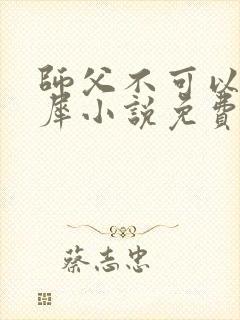 師父不可以
犀小說免費
蔡志忠